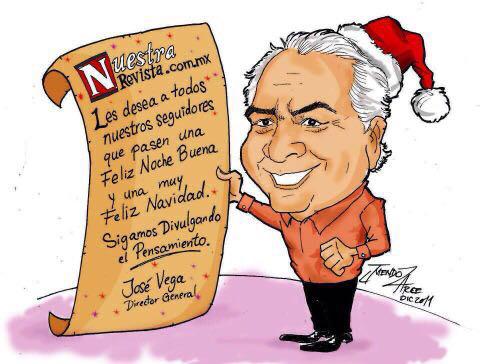 Nuestra
Revista.com.mx
Les desea a todos
nuestros seguidores
que pasen una
Feliz Noche Buena
y una muy
Feliz Navidad.
Sigamos Divulgando
el Pensamiento.
José Vega
Director General
DIC 2011